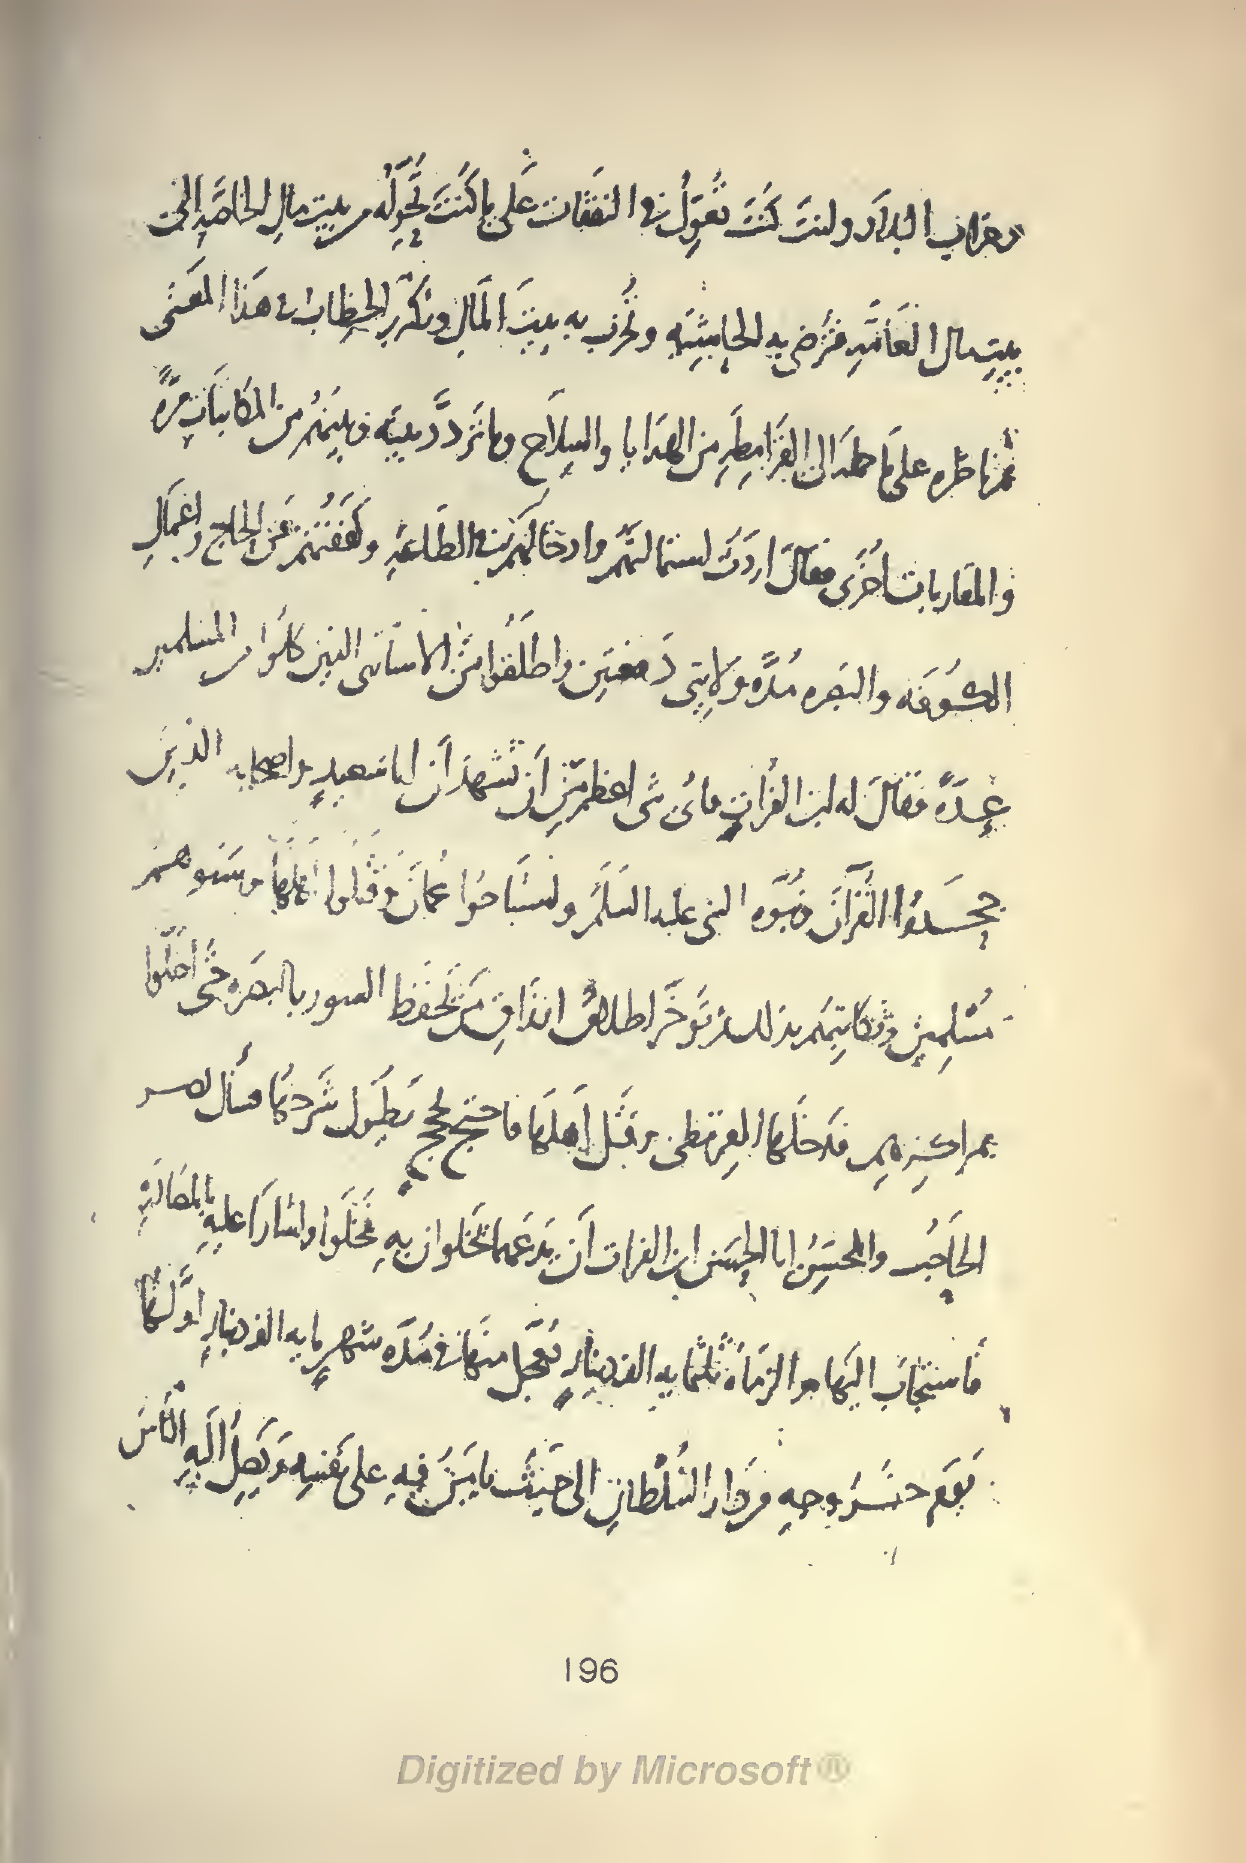 وخراب البلاد ولست كنت تعول في النفقات على ما كنت تحوله من بيت مال الخاصة إلى
بيت مال العامة فترضي به الحاشية وتخرب به بيت المال وتكرر الخطاب في هذا المعنى
ثم ناظره على ما حمله الى القرامطة من الهدايا والسلاح وما تردد بينه وبينهم من المكاتبات مرة
والمقاربات أخرى فقال اردت استمالتهم وادخالهم في الطاعة وكففتهم عن الحاج وأعمال
الكوفة والبصرة مدة ولايتي دفعتين واطلقوا من الأسارى الذين كانوا من المسلمين
عدة فقال له ابن الفرات فأي شى اعظم من أن تشهد أن ابا سعيد واصحابه الذين
جحدوا القرآن ونبوة النبي عليه السلم واستباحوا عمان وقتلوا أهلها وسبوهم
مسلمين وتكاتبهم بذلك ثم تؤخر اطلاق ارزاق من يحفظ السور بالبصرة حتى أخلوا
بمراكزهم فدخلها القرمطي وقتل أهلها فاحتج بحجج يطول شرحها فسأل نصر
الحاجب والمحسن ابا الحسن ابن الفرات أن يدعهما يخلوان به فخلوا وأشارا عليه بالمصالحة
فاستجاب اليها والزماه ثلثماية الف دينار يعجل منها في مدة شهر ماية الف دينار أولها
يوم خروجه من دار السلطان الى حيث يامن فيه على نفسه ويصل اليه الناس
196
Digitized by Microsoft®